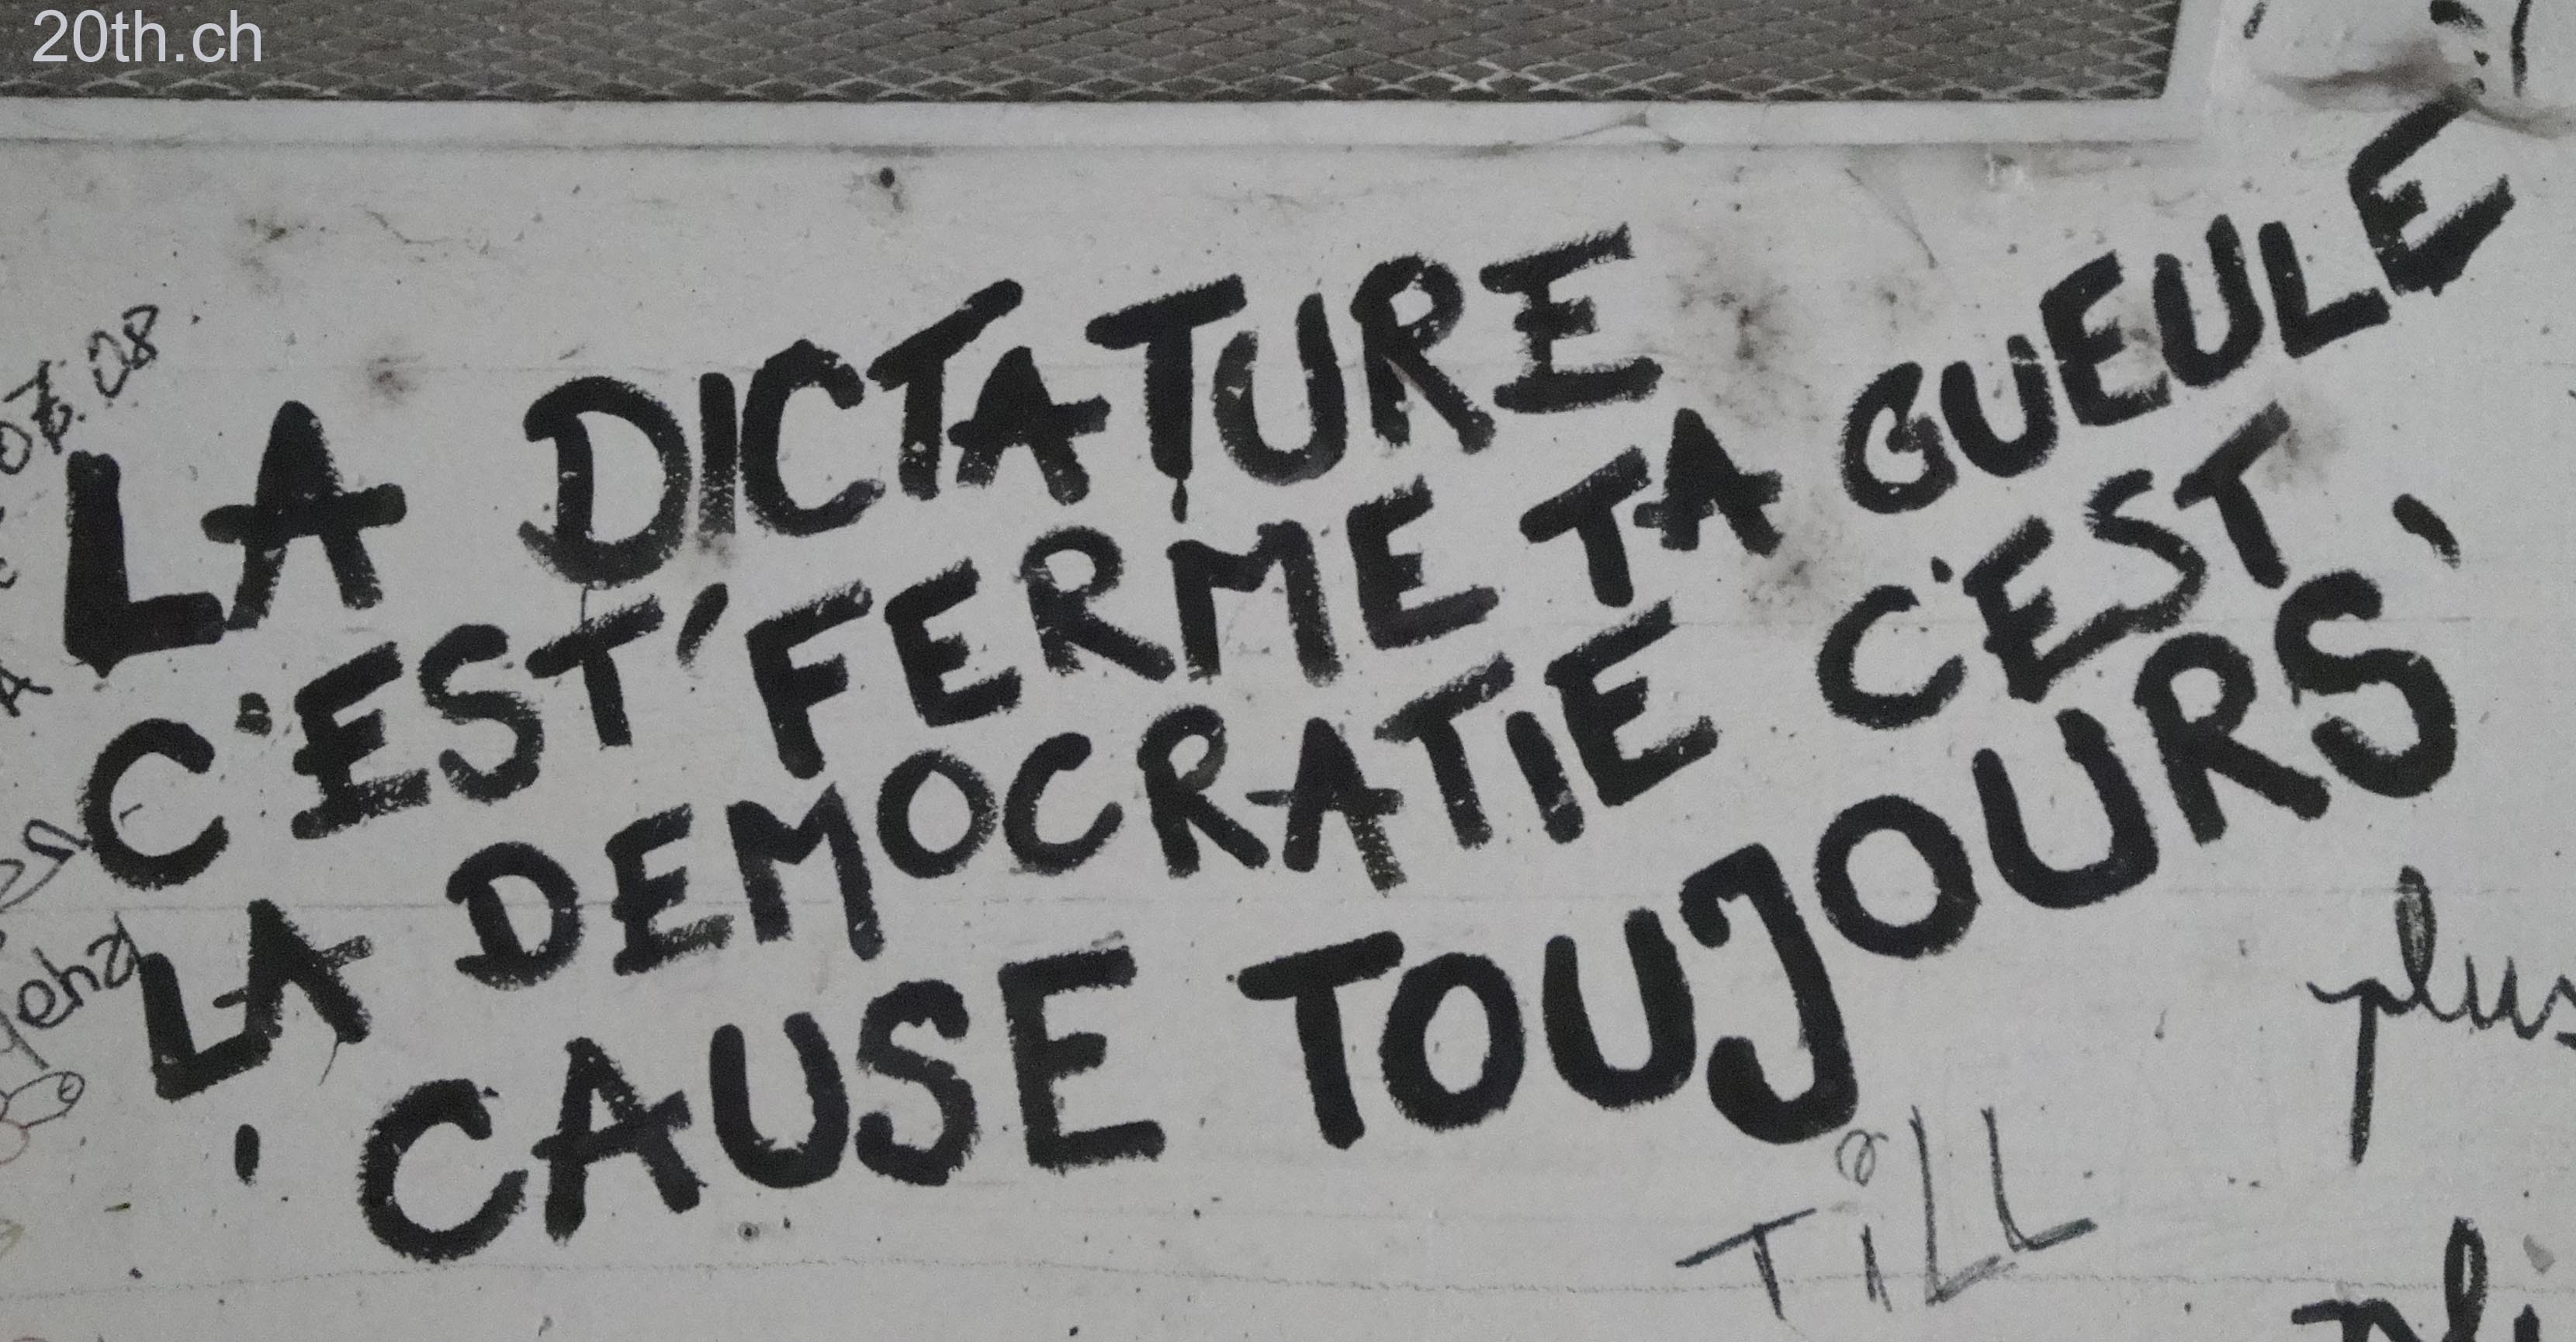 20th.ch
LA DICTATURE
C'EST 'FERME TA GUEULE
LA DEMOCRATIE C'EST
'CAUSE TOUJOURS'
TiLL
plus